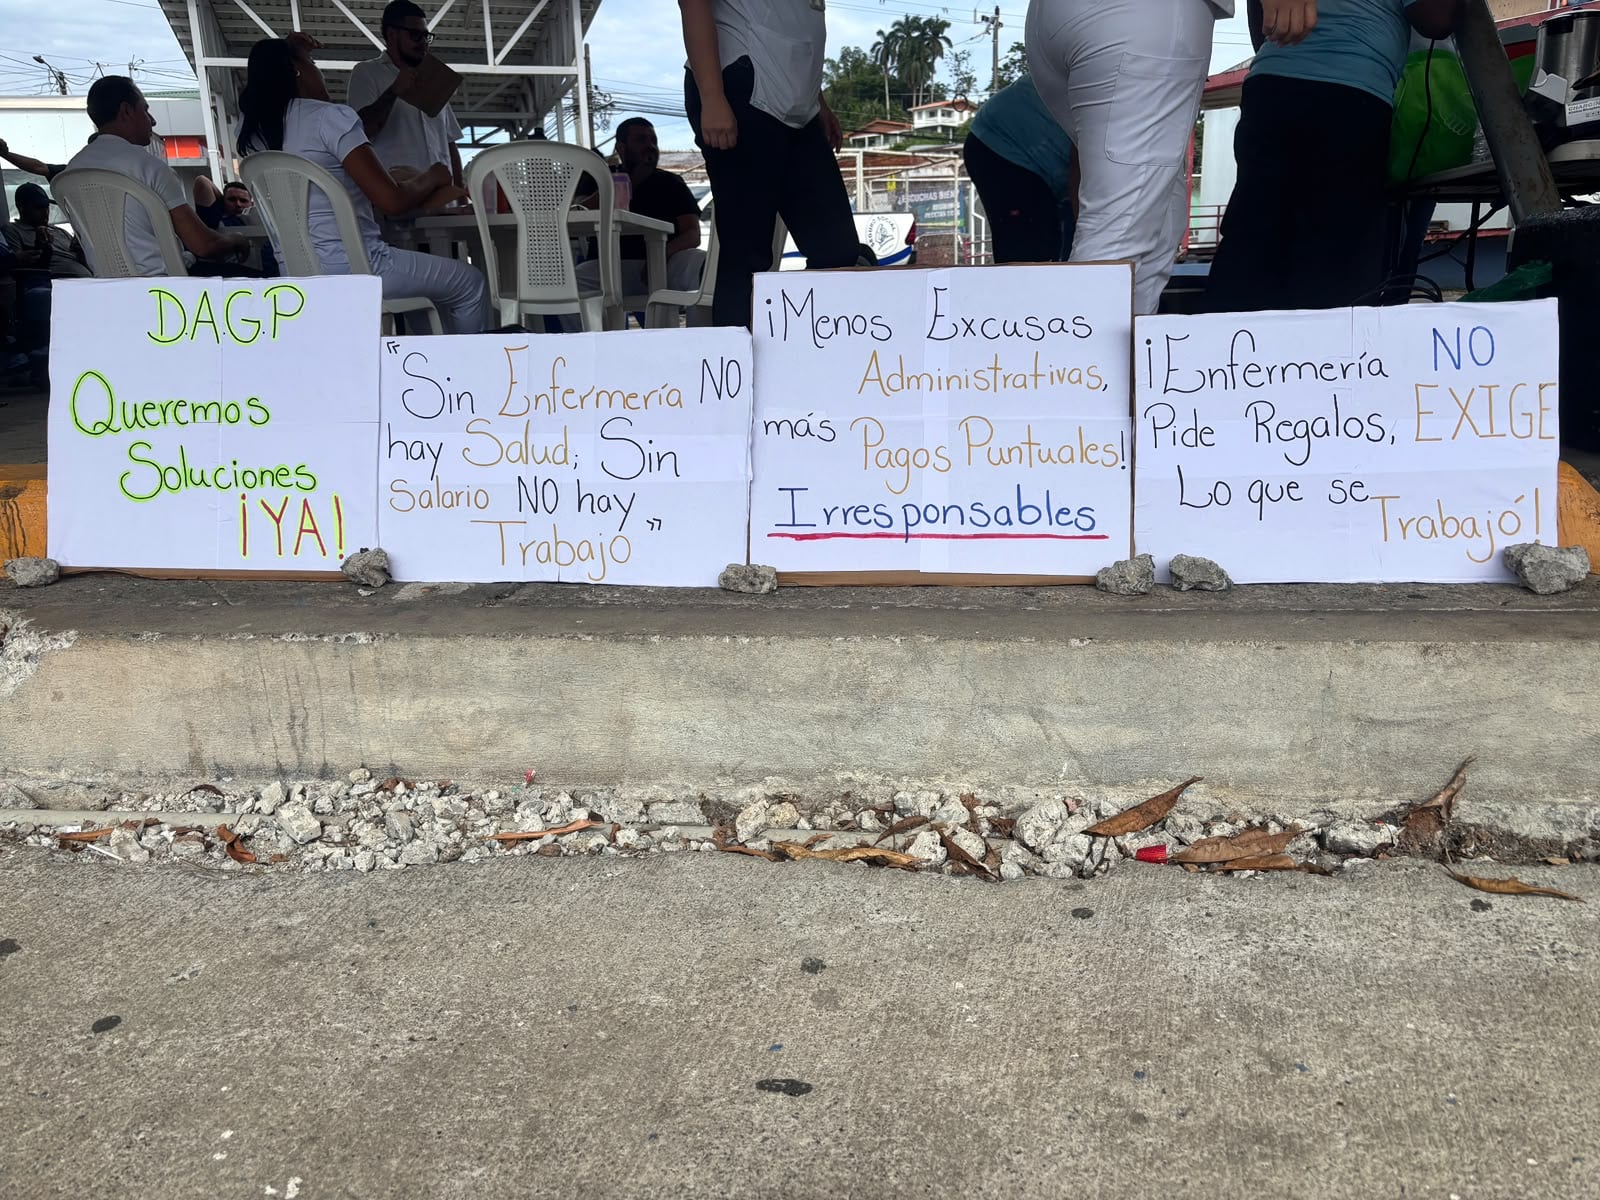 D.A.G.P
Queremos
Soluciones
¡YA!
"Sin Enfermería NO
hay Salud; Sin
Salario NO hay
Trabajo"
¡Menos Excusas
Administrativas,
más Pagos Puntuales!
Irresponsables
¡Enfermería NO
Pide Regalos, EXIGE
Lo que se
Trabajó!
¿ESCUCHAS BIEN
SEGURO SOCIAL